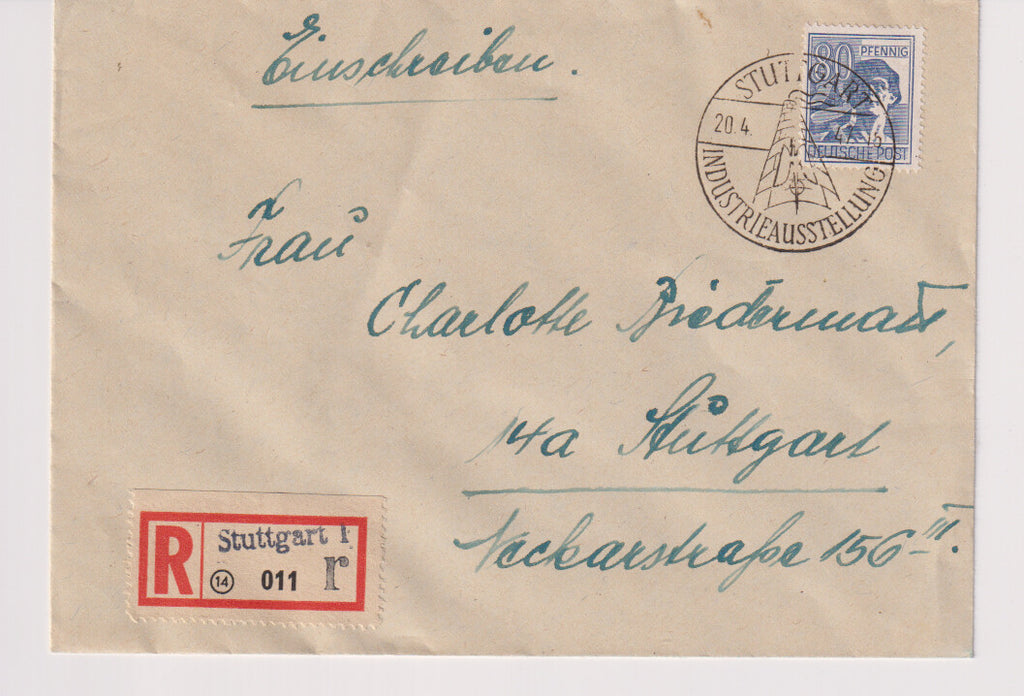 Einschreiben.
80 PFENNIG
DEUTSCHE POST
STUTTGART
20.4.
INDUSTRIEAUSSTELLUNG
Frau
Charlotte Biedermann,
14a Stuttgart
Neckarstraße 156-III.
R Stuttgart 1
14 011 r